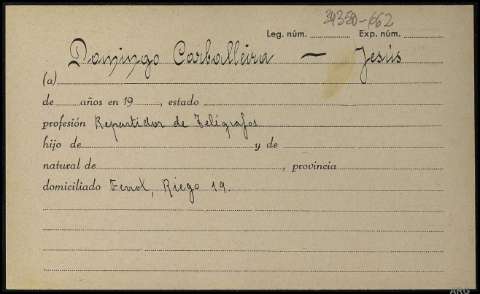 34380-662
Leg. núm. Exp. núm.
Domingo Carballeira — Jesús
(a)
de años en 19 , estado
profesión Repartidor de Telégrafos
hijo de y de
natural de , provincia
domiciliado Ferrol, Riego 19.